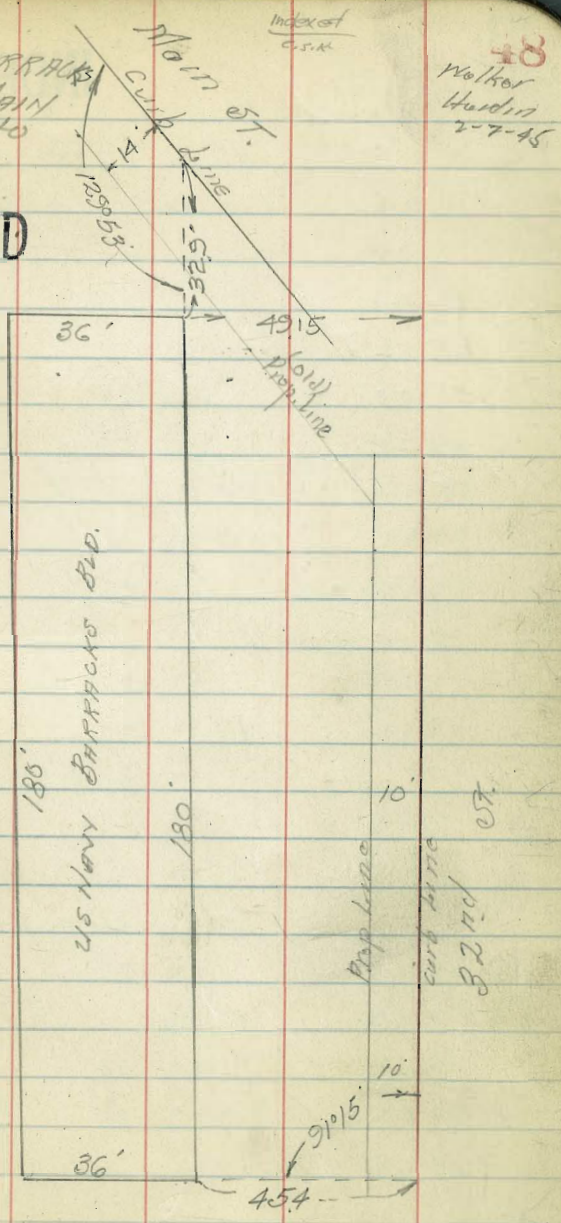 Indexed
C.S.K.
48
Walker
Hardin
2-7-45
RRACKS
AIN
Main ST.
curb Line
14'
129°53'
D
32.9'
36'
49.15
(old)
Prop. Line
US NAVY BARRACKS BLD.
180'
180'
10'
Prop Line
curb Line
32nd ST.
10'
91°15'
36'
45.4